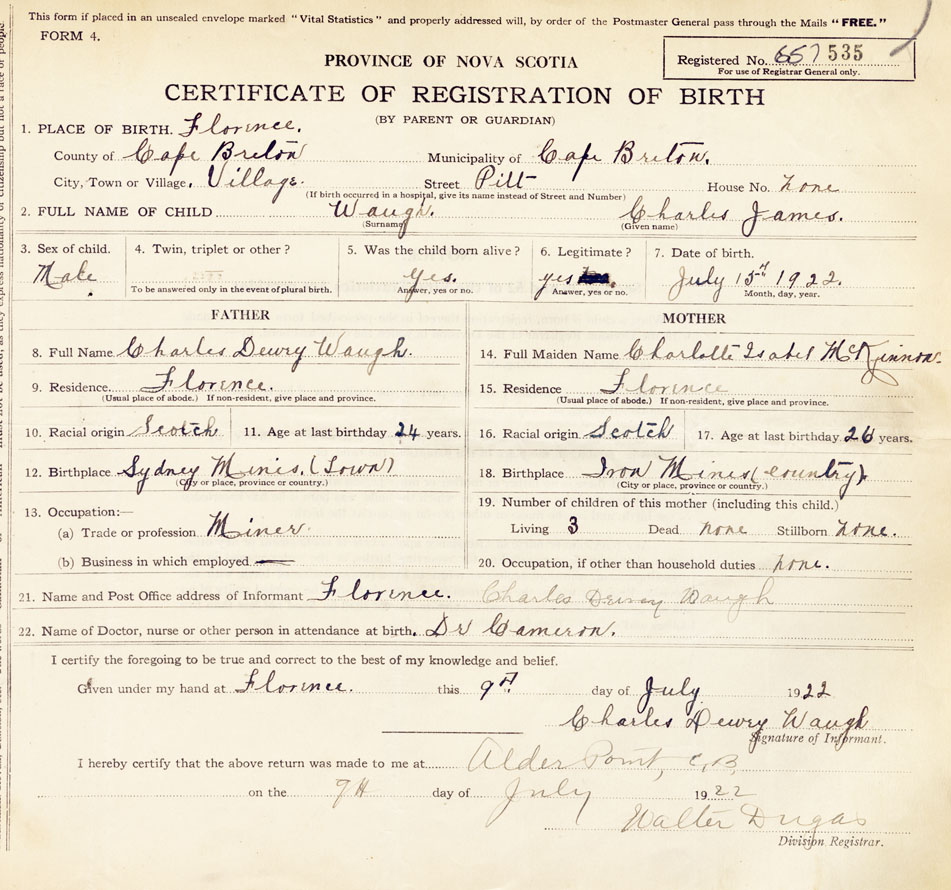 This form if placed in an unsealed envelope marked "Vital Statistics" and properly addressed will, by order of the Postmaster General pass through the Mails "FREE."
FORM 4.
Registered No. 657 535
For use of Registrar General only.
PROVINCE OF NOVA SCOTIA
CERTIFICATE OF REGISTRATION OF BIRTH
(BY PARENT OR GUARDIAN)
1. PLACE OF BIRTH. Florence.
County of Cape Breton Municipality of Cape Breton.
City, Town or Village. Village. Street Pitt House No. none
(If birth occurred in a hospital, give its name instead of Street and Number)
2. FULL NAME OF CHILD Waugh. Charles James.
(Surname) (Given name)
3. Sex of child. 4. Twin, triplet or other? 5. Was the child born alive? 6. Legitimate? 7. Date of birth.
Male yes. yes July 1922.
To be answered only in the event of plural birth. Answer, yes or no. Answer, yes or no. Month, day, year.
FATHER MOTHER
8. Full Name Charles Dewry Waugh. 14. Full Maiden Name Charlotte Isabel McKinnon.
9. Residence. Florence. 15. Residence Florence
(Usual place of abode.) If non-resident, give place and province. (Usual place of abode.) If non-resident, give place and province.
10. Racial origin Scotch 11. Age at last birthday 24 years. 16. Racial origin Scotch 17. Age at last birthday 26 years.
12. Birthplace Sydney Mines. (Town) 18. Birthplace Iron Mines (country).
(City or place, province or country.) (City or place, province or country.)
13. Occupation:— 19. Number of children of this mother (including this child.)
(a) Trade or profession Miner. Living 3 Dead none Stillborn none.
(b) Business in which employed — 20. Occupation, if other than household duties none.
21. Name and Post Office address of Informant Florence. Charles Dewey Waugh
22. Name of Doctor, nurse or other person in attendance at birth. Dr Cameron.
I certify the foregoing to be true and correct to the best of my knowledge and belief.
Given under my hand at Florence. this 9th day of July 1922
Charles Dewry Waugh
Signature of Informant.
I hereby certify that the above return was made to me at Alder Point, C.B.
on the 9th day of July 1922
Walter Dugas
Division Registrar.